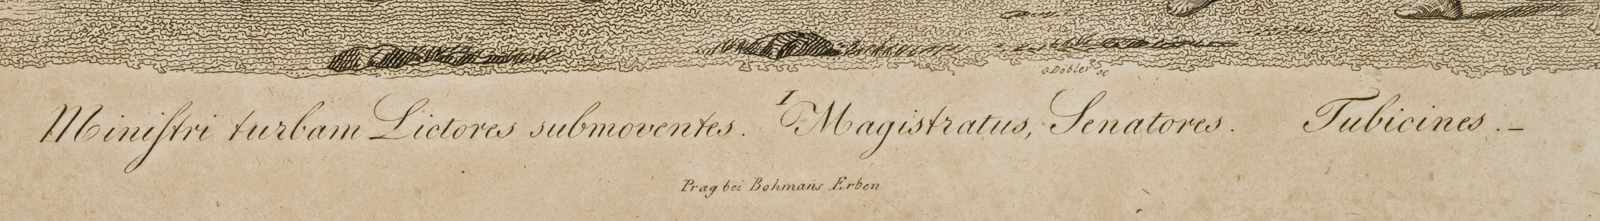 G Döbler sc
Miniſtri turbam Lictores submoventes. I Magistratus, Senatores. Tubicines. –
Prag bei Bohmans Erben